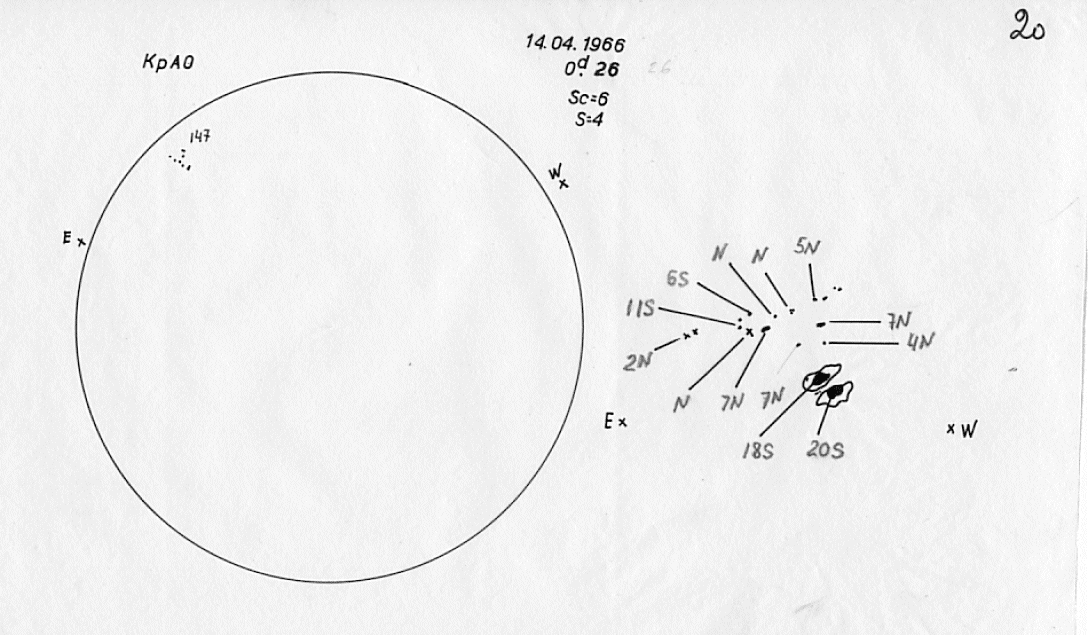 20
КрАО
14.04.1966
0d. 26 26
Sc=6
S=4
147
W
E
N N 5N
6S
11S
7N
4N
2N
N 7N 7N
E
W
18S 20S